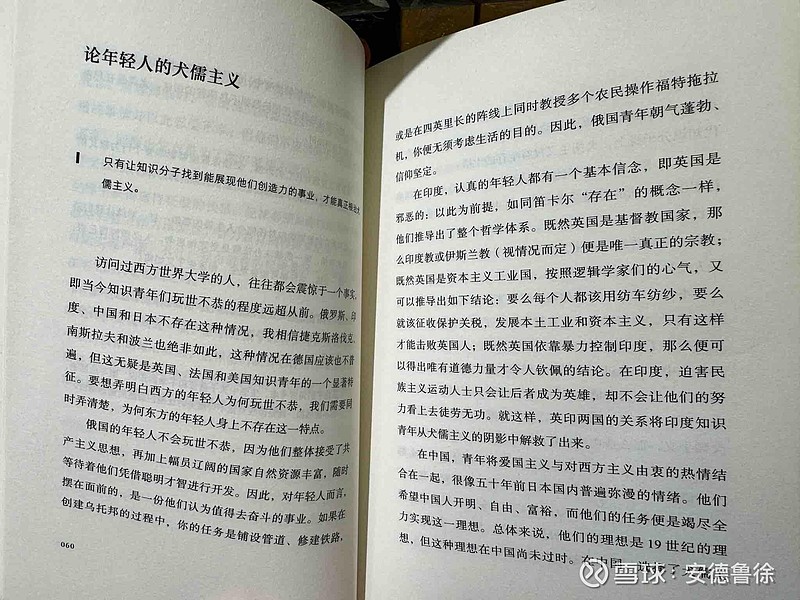 论年轻人的犬儒主义
只有让知识分子找到能展现他们创造力的事业，才能真正根治犬
儒主义。
访问过西方世界大学的人，往往都会震惊于一个事实，
即当今知识青年们玩世不恭的程度远超从前。俄罗斯、印
度、中国和日本不存在这种情况，我相信捷克斯洛伐克、
南斯拉夫和波兰也绝非如此，这种情况在德国应该也不普
遍，但这无疑是英国、法国和美国知识青年的一个显著特
征。要想弄明白西方的年轻人为何玩世不恭，我们需要同
时弄清楚，为何东方的年轻人身上不存在这一特点。
俄国的年轻人不会玩世不恭，因为他们整体接受了共
产主义思想，再加上幅员辽阔的国家自然资源丰富，随时
等待着他们凭借聪明才智进行开发。因此，对年轻人而言，
摆在面前的，是一份他们认为值得去奋斗的事业。如果在
创建乌托邦的过程中，你的任务是铺设管道、修建铁路，
060
或是在四英里长的阵线上同时教授多个农民操作福特拖拉
机，你便无须考虑生活的目的。因此，俄国青年朝气蓬勃、
信仰坚定。
在印度，认真的年轻人都有一个基本信念，即英国是
邪恶的：以此为前提，如同笛卡尔“存在”的概念一样，
他们推导出了整个哲学体系。既然英国是基督教国家，那
么印度教或伊斯兰教（视情况而定）便是唯一真正的宗教；
既然英国是资本主义工业国，按照逻辑学家们的心气，又
可以推导出如下结论：要么每个人都该用纺车纺纱，要么
就该征收保护关税，发展本土工业和资本主义，只有这样
才能击败英国人；既然英国依靠暴力控制印度，那么便可
以得出唯有道德力量才令人钦佩的结论。在印度，迫害民
族主义运动人士只会让后者成为英雄，却不会让他们的努
力看上去徒劳无功。就这样，英印两国的关系将印度知识
青年从犬儒主义的阴影中解救了出来。
在中国，青年将爱国主义与对西方主义由衷的热情结
合在一起，很像五十年前日本国内普遍弥漫的情绪。他们
希望中国人开明、自由、富裕，而他们的任务便是竭尽全
力实现这一理想。总体来说，他们的理想是 19 世纪的理
想，但这种理想在中国尚未过时。在中国，
雪球：安德鲁徐